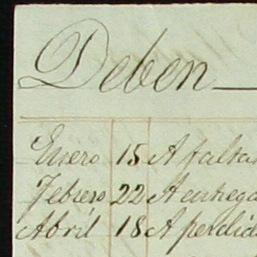 Deben
Enero 15 A falta
Febrero 22 A entrega
Abril 18 A perdid